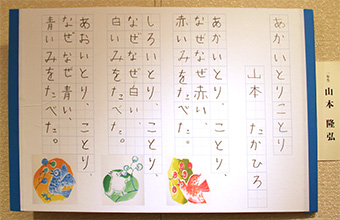 あかいとりことり
山本 たかひろ
あかいとり、ことり、
なぜなぜ赤い、
赤いみをたべた。
しろいとり、ことり、
なぜなぜ白い
白いみをたべた。
あおいとり、ことり、
なぜなぜ青い、
青いみをたべた。
山本 隆弘